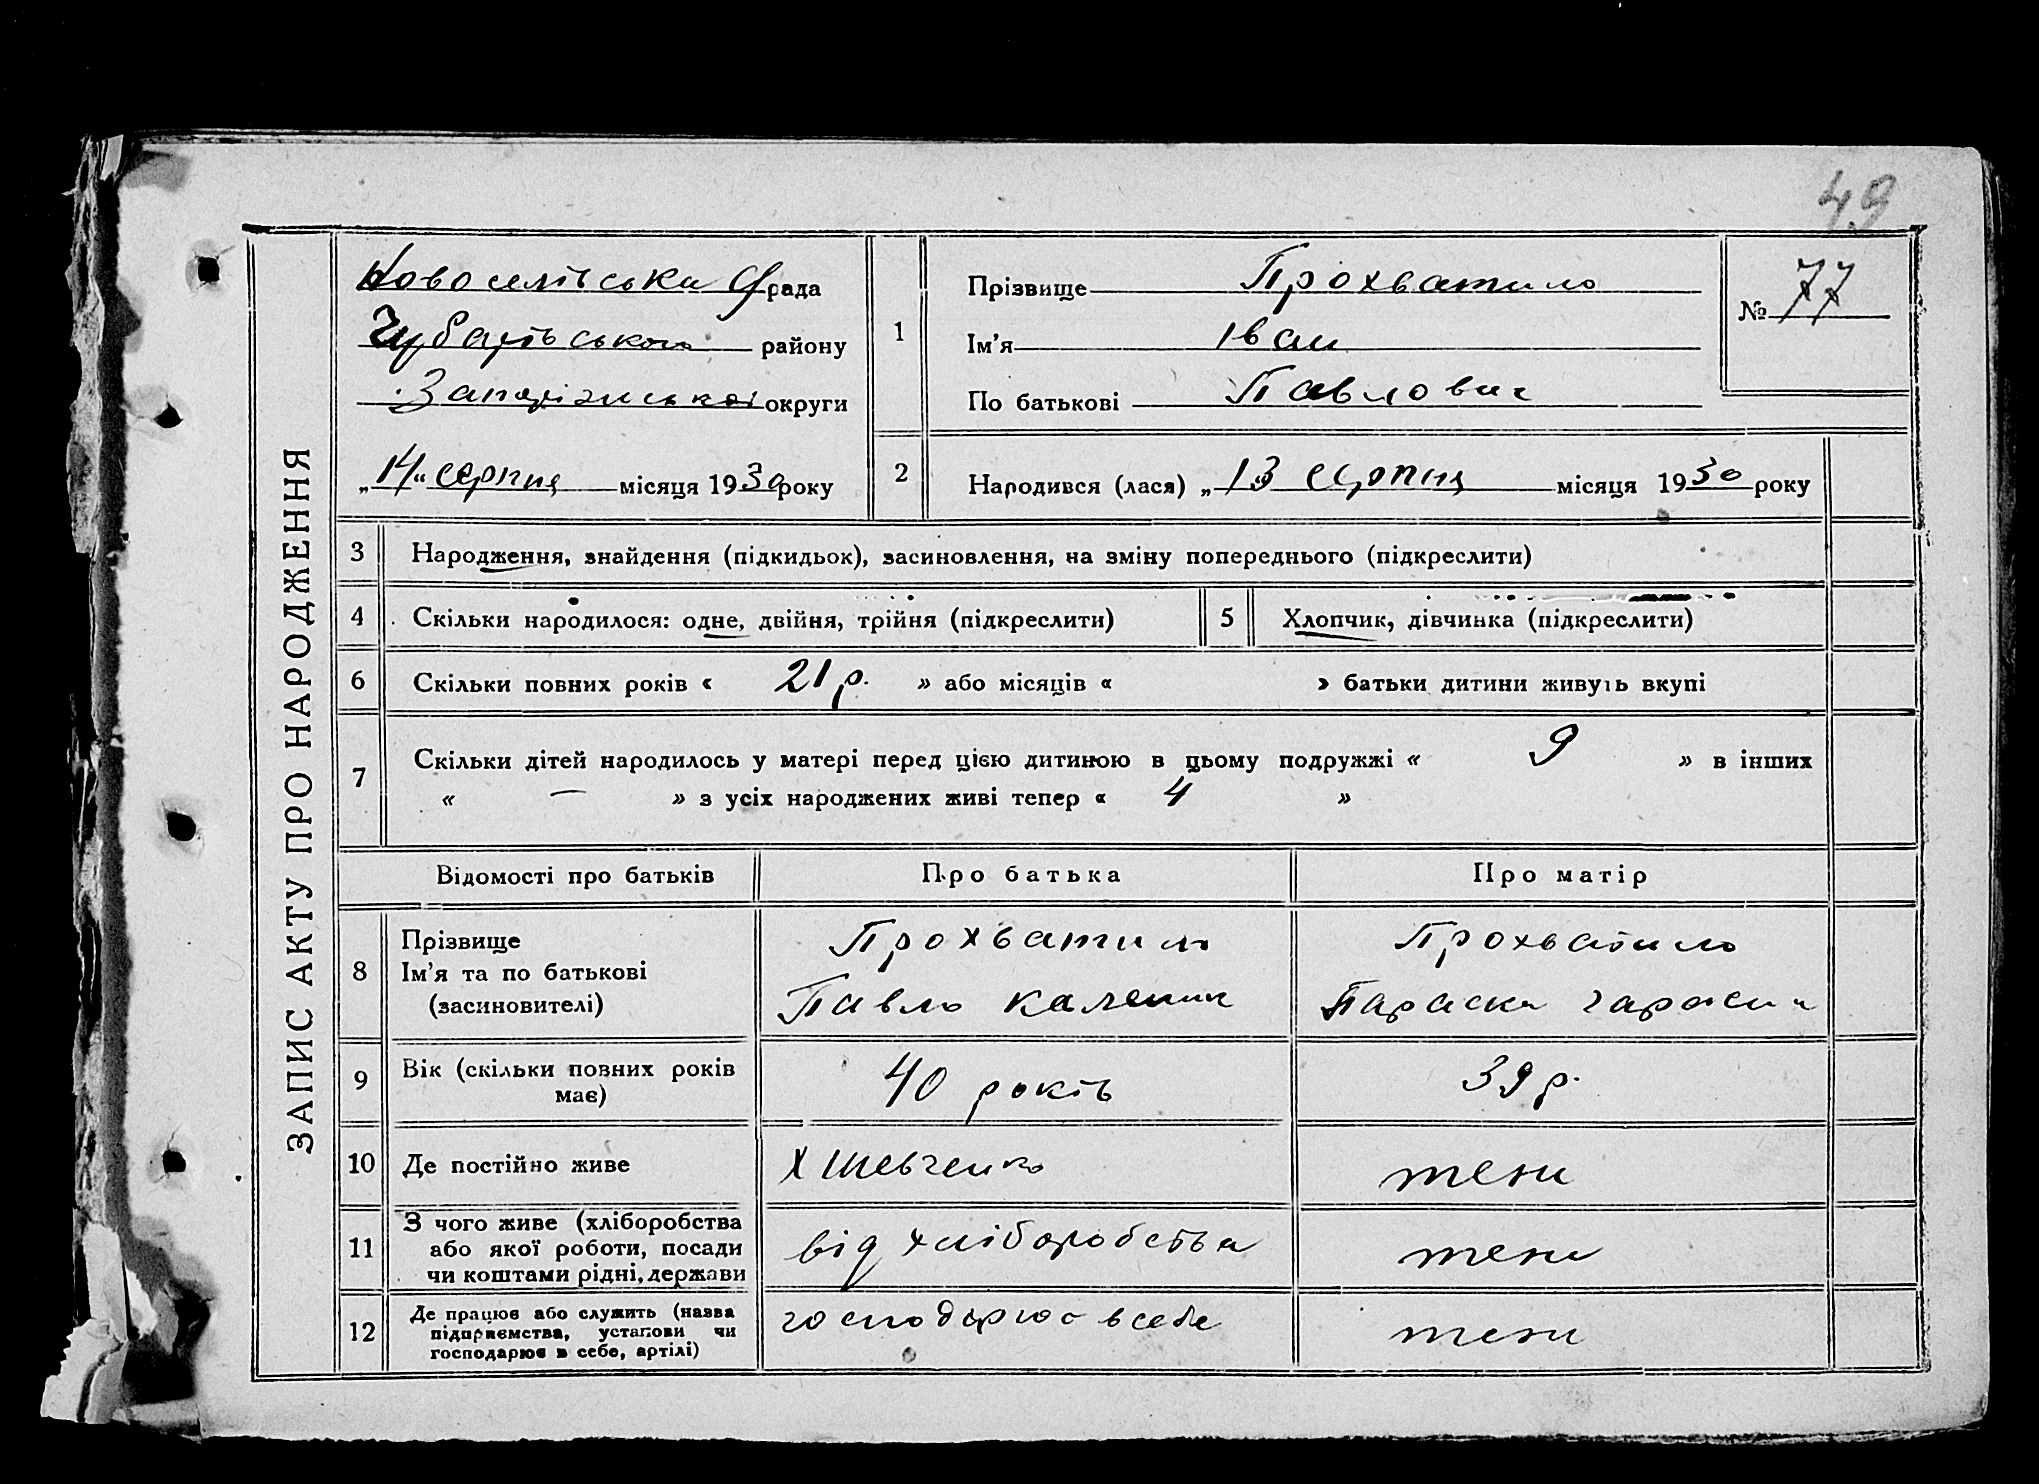 49
Новоселівська С/рада
Чубарівського району
Запорізької округи
„14“ серпня місяця 1930 року
1
Прізвище Прохватило
Ім'я Іван
По батькові Павлович
№ 77
2 Народився (лася) „13“ серпня місяця 1930 року
ЗАПИС АКТУ ПРО НАРОДЖЕННЯ
3 Народження, знайдення (підкидьок), засиновлення, на зміну попереднього (підкреслити)
4 Скільки народилося: одне, двійня, трійня (підкреслити)
5 Хлопчик, дівчинка (підкреслити)
6 Скільки повних років « 21 р. » або місяців « » батьки дитини живуть вкупі
7 Скільки дітей народилось у матері перед цією дитиною в цьому подружжі « 9 » в інших
« — » з усіх народжених живі тепер « 4 »
Відомості про батьків Про батька Про матір
8 Прізвище
Ім'я та по батькові
(засиновителі)
Прохватило
Павло Каленик
Прохватило
Параска Гарасим
9 Вік (скільки повних років
має)
40 років
39 р.
10 Де постійно живе
Х Шевченко
теж
11 З чого живе (хліборобства
або якої роботи, посади
чи коштами рідні, держави
від хліборобства
теж
12 Де працює або служить (назва
підприємства, установи чи
господарює в себе, артілі)
господарює в себе
теж